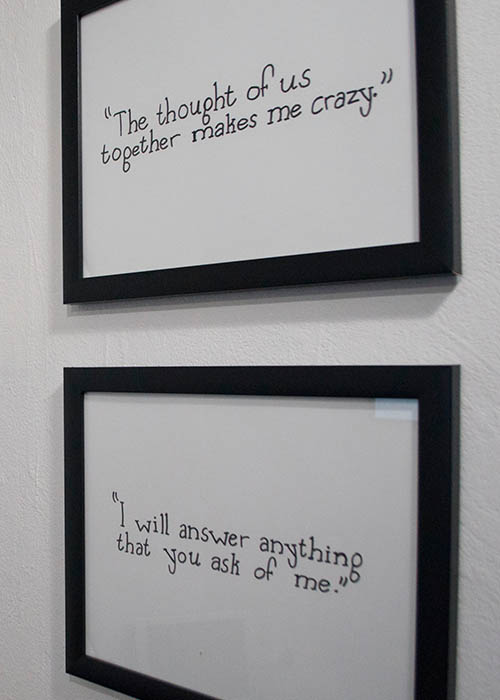 "The thought of us
together makes me crazy."
"I will answer anything
that you ask of me."